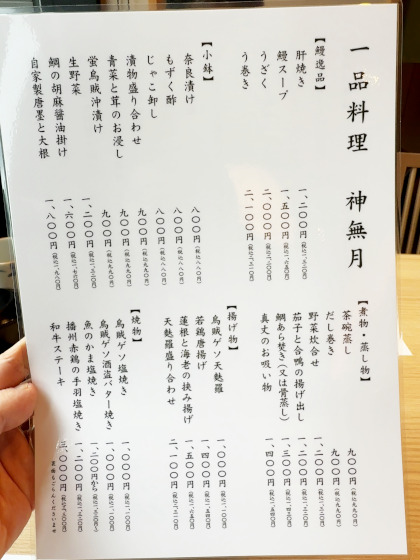 一品料理　神無月
【鰻逸品】
肝焼き　一、二〇〇円(税込一、三二〇円)
鰻スープ　一、五〇〇円(税込一、六五〇円)
うざく　二、〇〇〇円(税込二、二〇〇円)
う巻き　二、一〇〇円(税込二、三一〇円)
【小鉢】
奈良漬け　八〇〇円(税込八八〇円)
もずく酢　八〇〇円(税込八八〇円)
じゃこ卸し　八〇〇円(税込八八〇円)
漬物盛り合わせ　九〇〇円(税込九九〇円)
青菜と茸のお浸し　九〇〇円(税込九九〇円)
蛍烏賊沖漬け　九〇〇円(税込九九〇円)
生野菜　一、二〇〇円(税込一、三二〇円)
鯛の胡麻醤油掛け　一、六〇〇円(税込一、七六〇円)
自家製唐墨と大根　一、八〇〇円(税込一、九八〇円)
【煮物・蒸し物】
茶碗蒸し　九〇〇円(税込九九〇円)
だし巻き　九〇〇円(税込九九〇円)
野菜炊合せ　一、二〇〇円(税込一、三二〇円)
茄子と合鴨の揚げ出し　一、二〇〇円(税込一、三二〇円)
鯛あら焚き(又は骨蒸し)　一、三〇〇円(税込一、四三〇円)
真丈のお吸い物　一、四〇〇円(税込一、五四〇円)
【揚げ物】
烏賊ゲソ天麩羅　一、〇〇〇円(税込一、一〇〇円)
若鶏唐揚げ　一、四〇〇円(税込一、五四〇円)
蓮根と海老の挟み揚げ　一、五〇〇円(税込一、六五〇円)
天麩羅盛り合わせ　二、一〇〇円(税込二、三一〇円)
【焼物】
烏賊ゲソ塩焼き　一、〇〇〇円(税込一、一〇〇円)
烏賊ゲソ酒盗バター焼き　一、〇〇〇円(税込一、一〇〇円)
魚のかま塩焼き　一、二〇〇円から(税込一、三二〇円〜)
播州赤鶏の手羽塩焼き　一、二〇〇円(税込一、三二〇円)
和牛ステーキ　三、〇〇〇円(税込三、三〇〇円)
裏面もごらんくださいませ